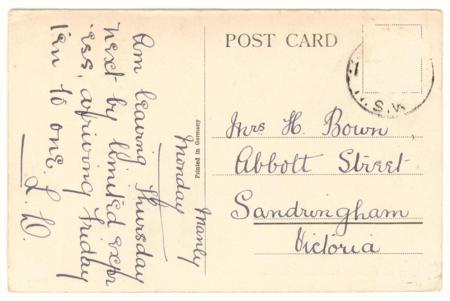 Manly
Monday
Am leaving Thursday
next by limited expr
ess, arriving Friday
ten to one.
L. D.
Printed in Germany
POST CARD
N.S.W
Mrs H. Bown
Abbott Street
Sandringham
Victoria